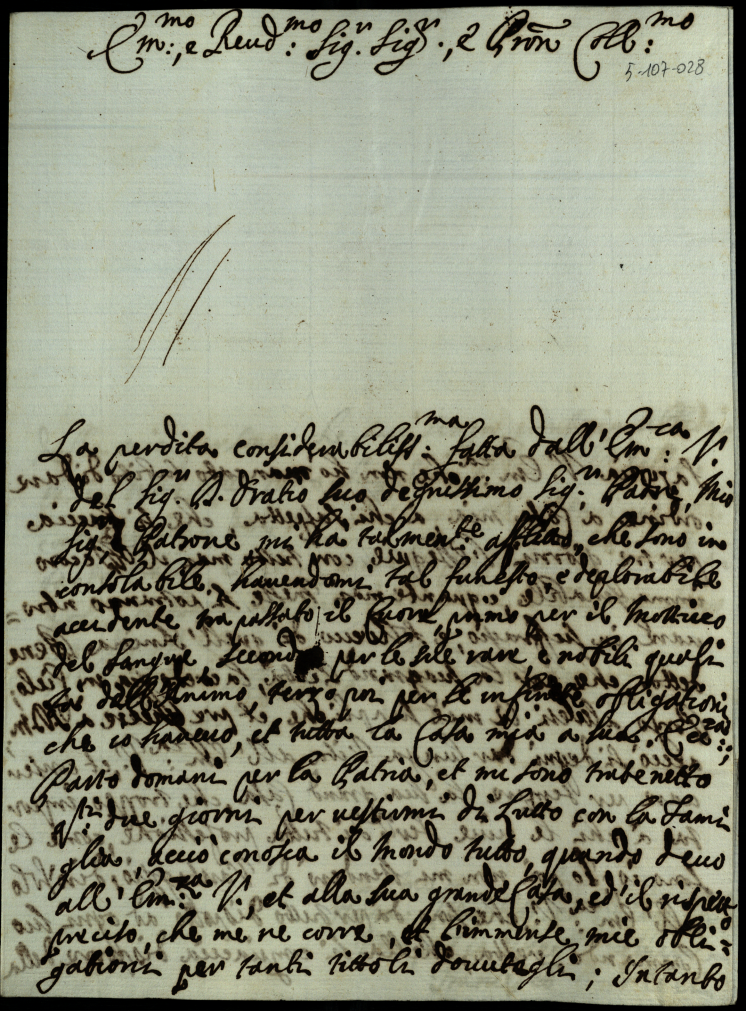 Em:mo, e Reud:mo Sig.r Sig.r, e Pron Coll:mo
5-107-028
La perdita considerabiliss:ma fatta dall'Em:ca V.
del Sig.r D. Oratio suo degnissimo Sig.r Padre, Mio
Sig.r e Patrone mi ha talmente afflitto, che sono in
consolabile, havendomi tal funesto, e deplorabile
accidente trapassato il Cuore, primo per il Mottiuo
del Sangue, secondo per le sue rare, e nobili quali
tà dell'Animo, terzo poi per le infinite obligationi
che io haueuo, et tutta la Casa mia a sua Ecc:za;
Parto domani per la Patria, et mi sono trattenetto
q.sti due giorni per uestirmi di Lutto con la Fami
glia, acciò conosca il Mondo tutto, quando deuo
all'Em:za V., et alla sua grande Casa, ed il rispetto
preciso, che me ne corre, et l'immense mie obli=
gationi per tanti tittoli douutagli; Intanto